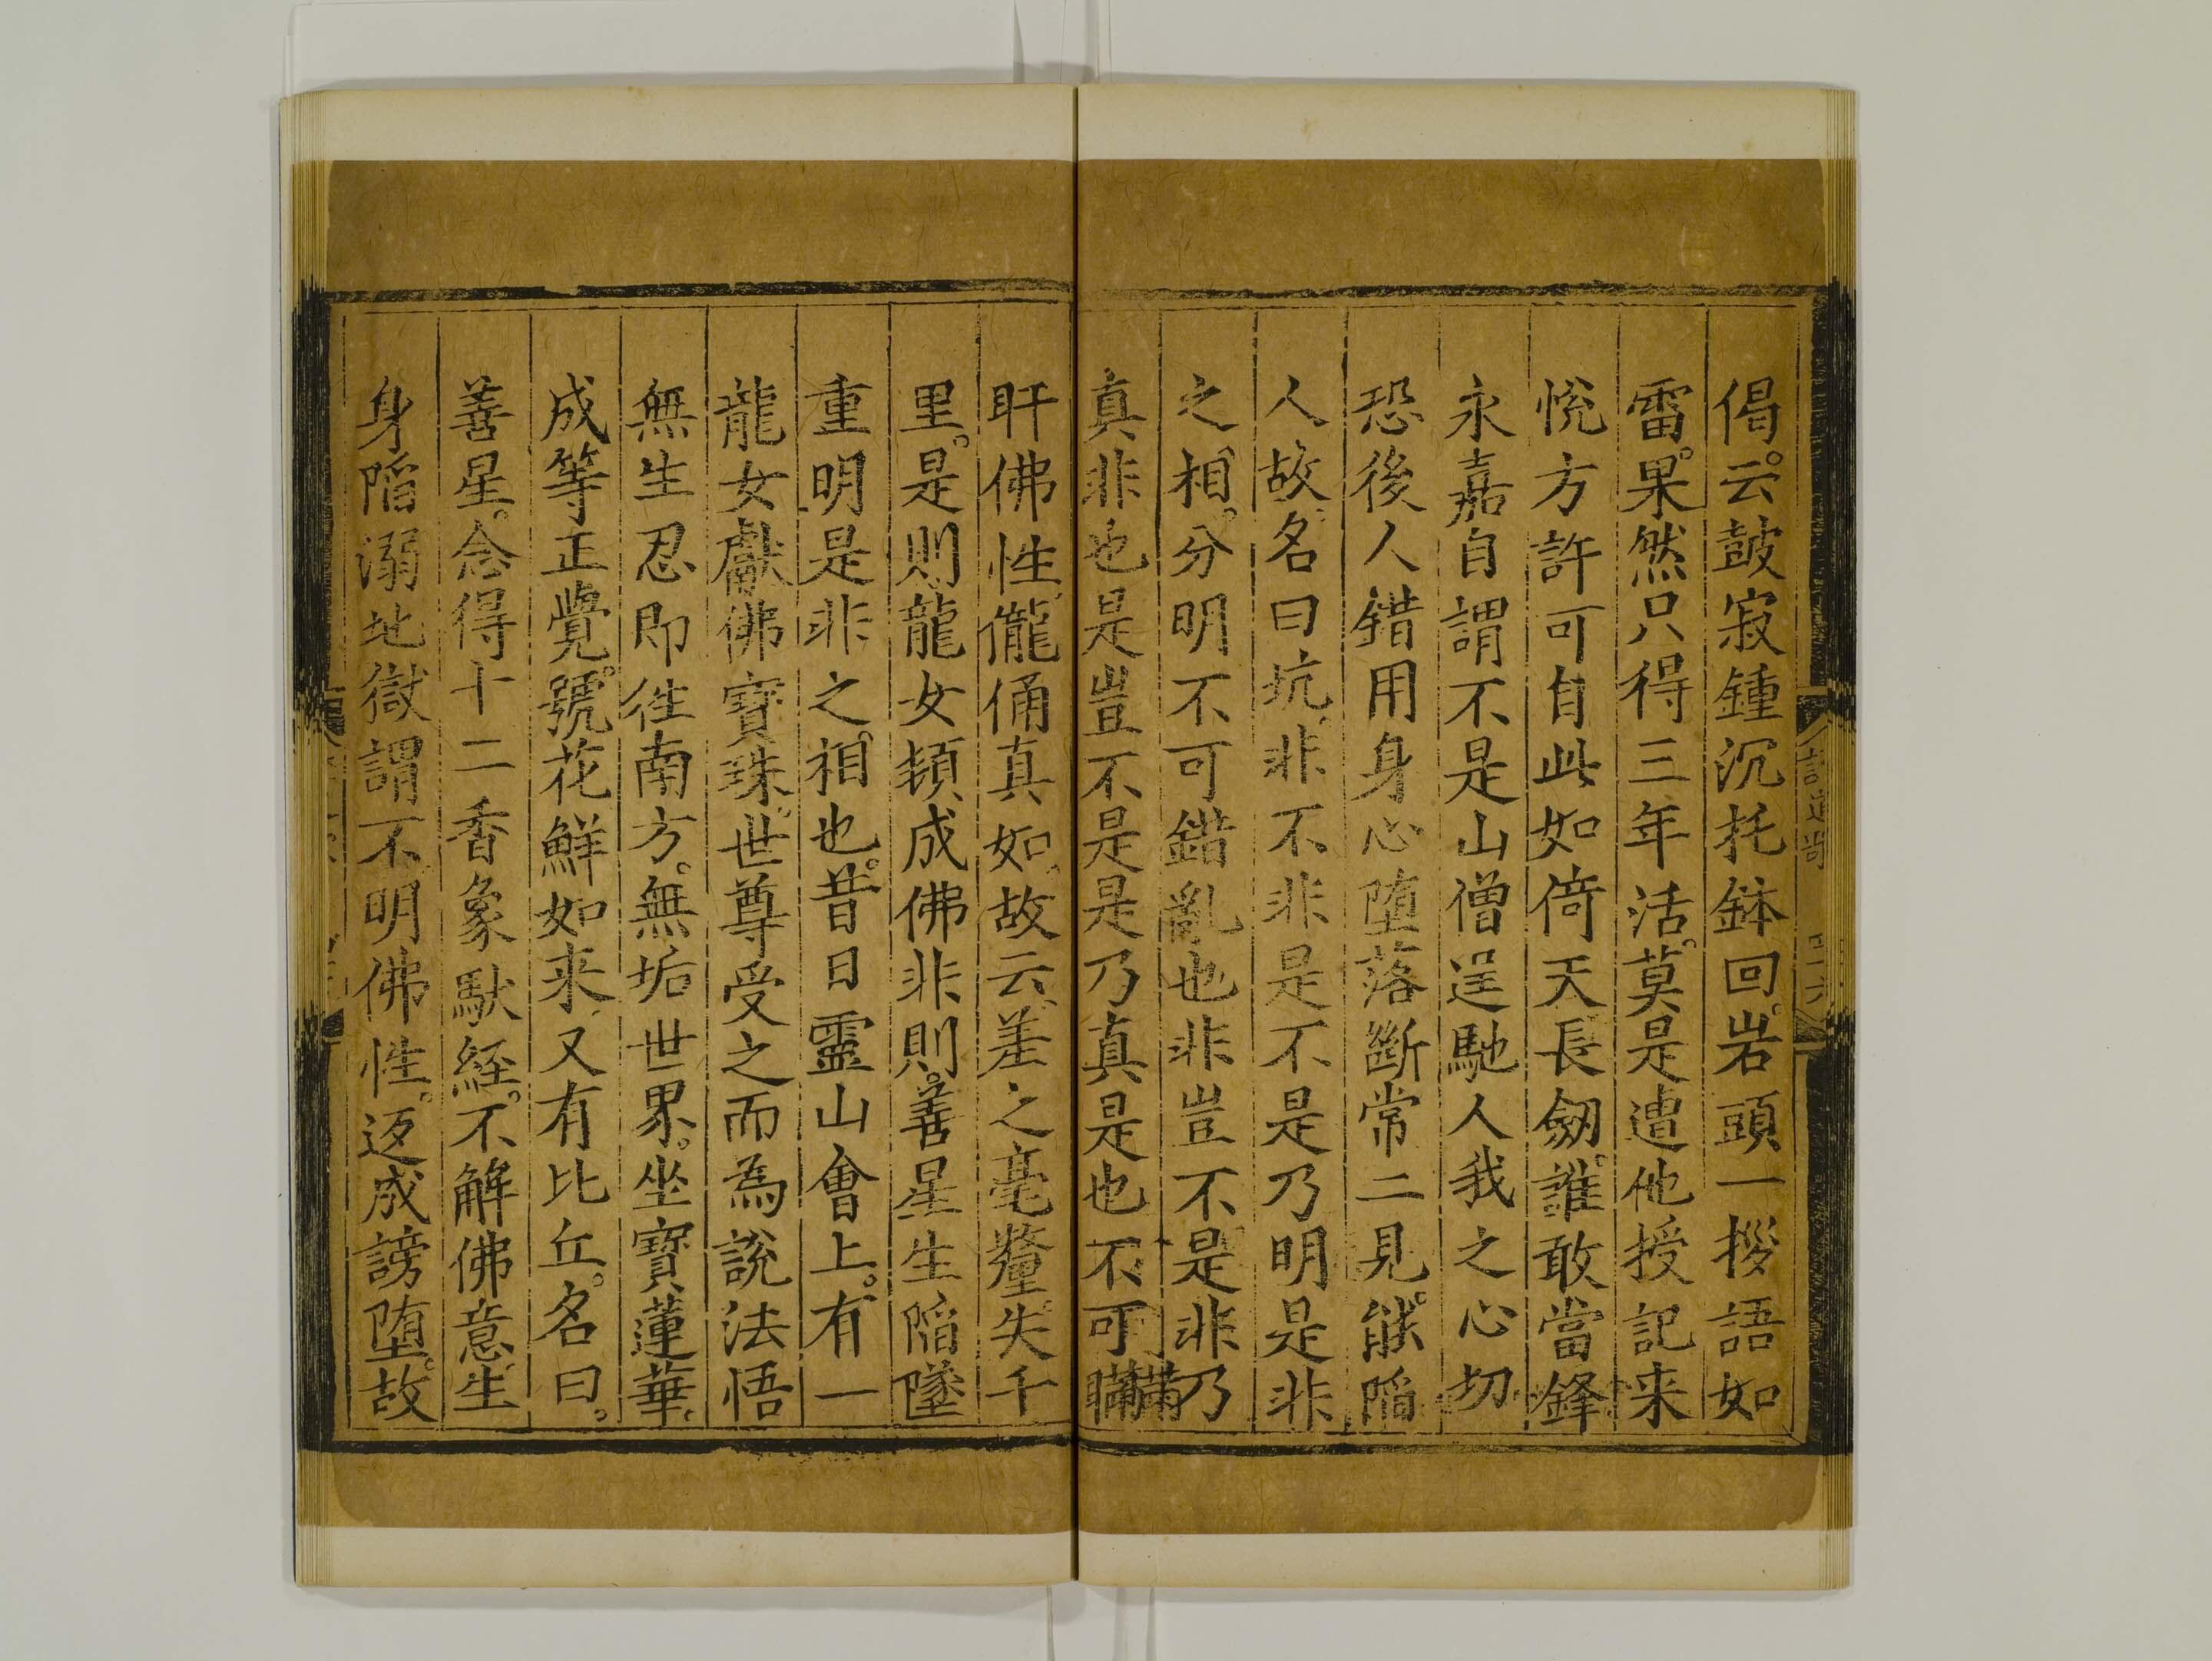 偈云鼓寂鍾沉托鉢回岩頭一拶語如
雷果然只得三年活莫是遭他授記来
恱方許可自此如倚天長劔誰敢當鋒
永嘉自謂不是山僧逞馳人我之心切
恐後人錯用身心堕落斷常二見能陥
人故名曰坑非不非是不是乃明是非
之相分明不可錯亂也非豈不是非乃
真非也是豈不是是乃真是也不可瞞
盰佛性儱侗真如故云差之毫釐失千
里是則龍女頓成佛非則善星生陥墜
重明是非之相也昔日靈山會上有一
龍女獻佛寶珠世尊受之而為說法悟
無生忍即徃南方無垢世界坐寳蓮華
成等正覺號花鮮如来又有比丘名曰
善星念得十二香象䭾経不解佛意生
身陥溺地獄謂不明佛性返成謗堕故